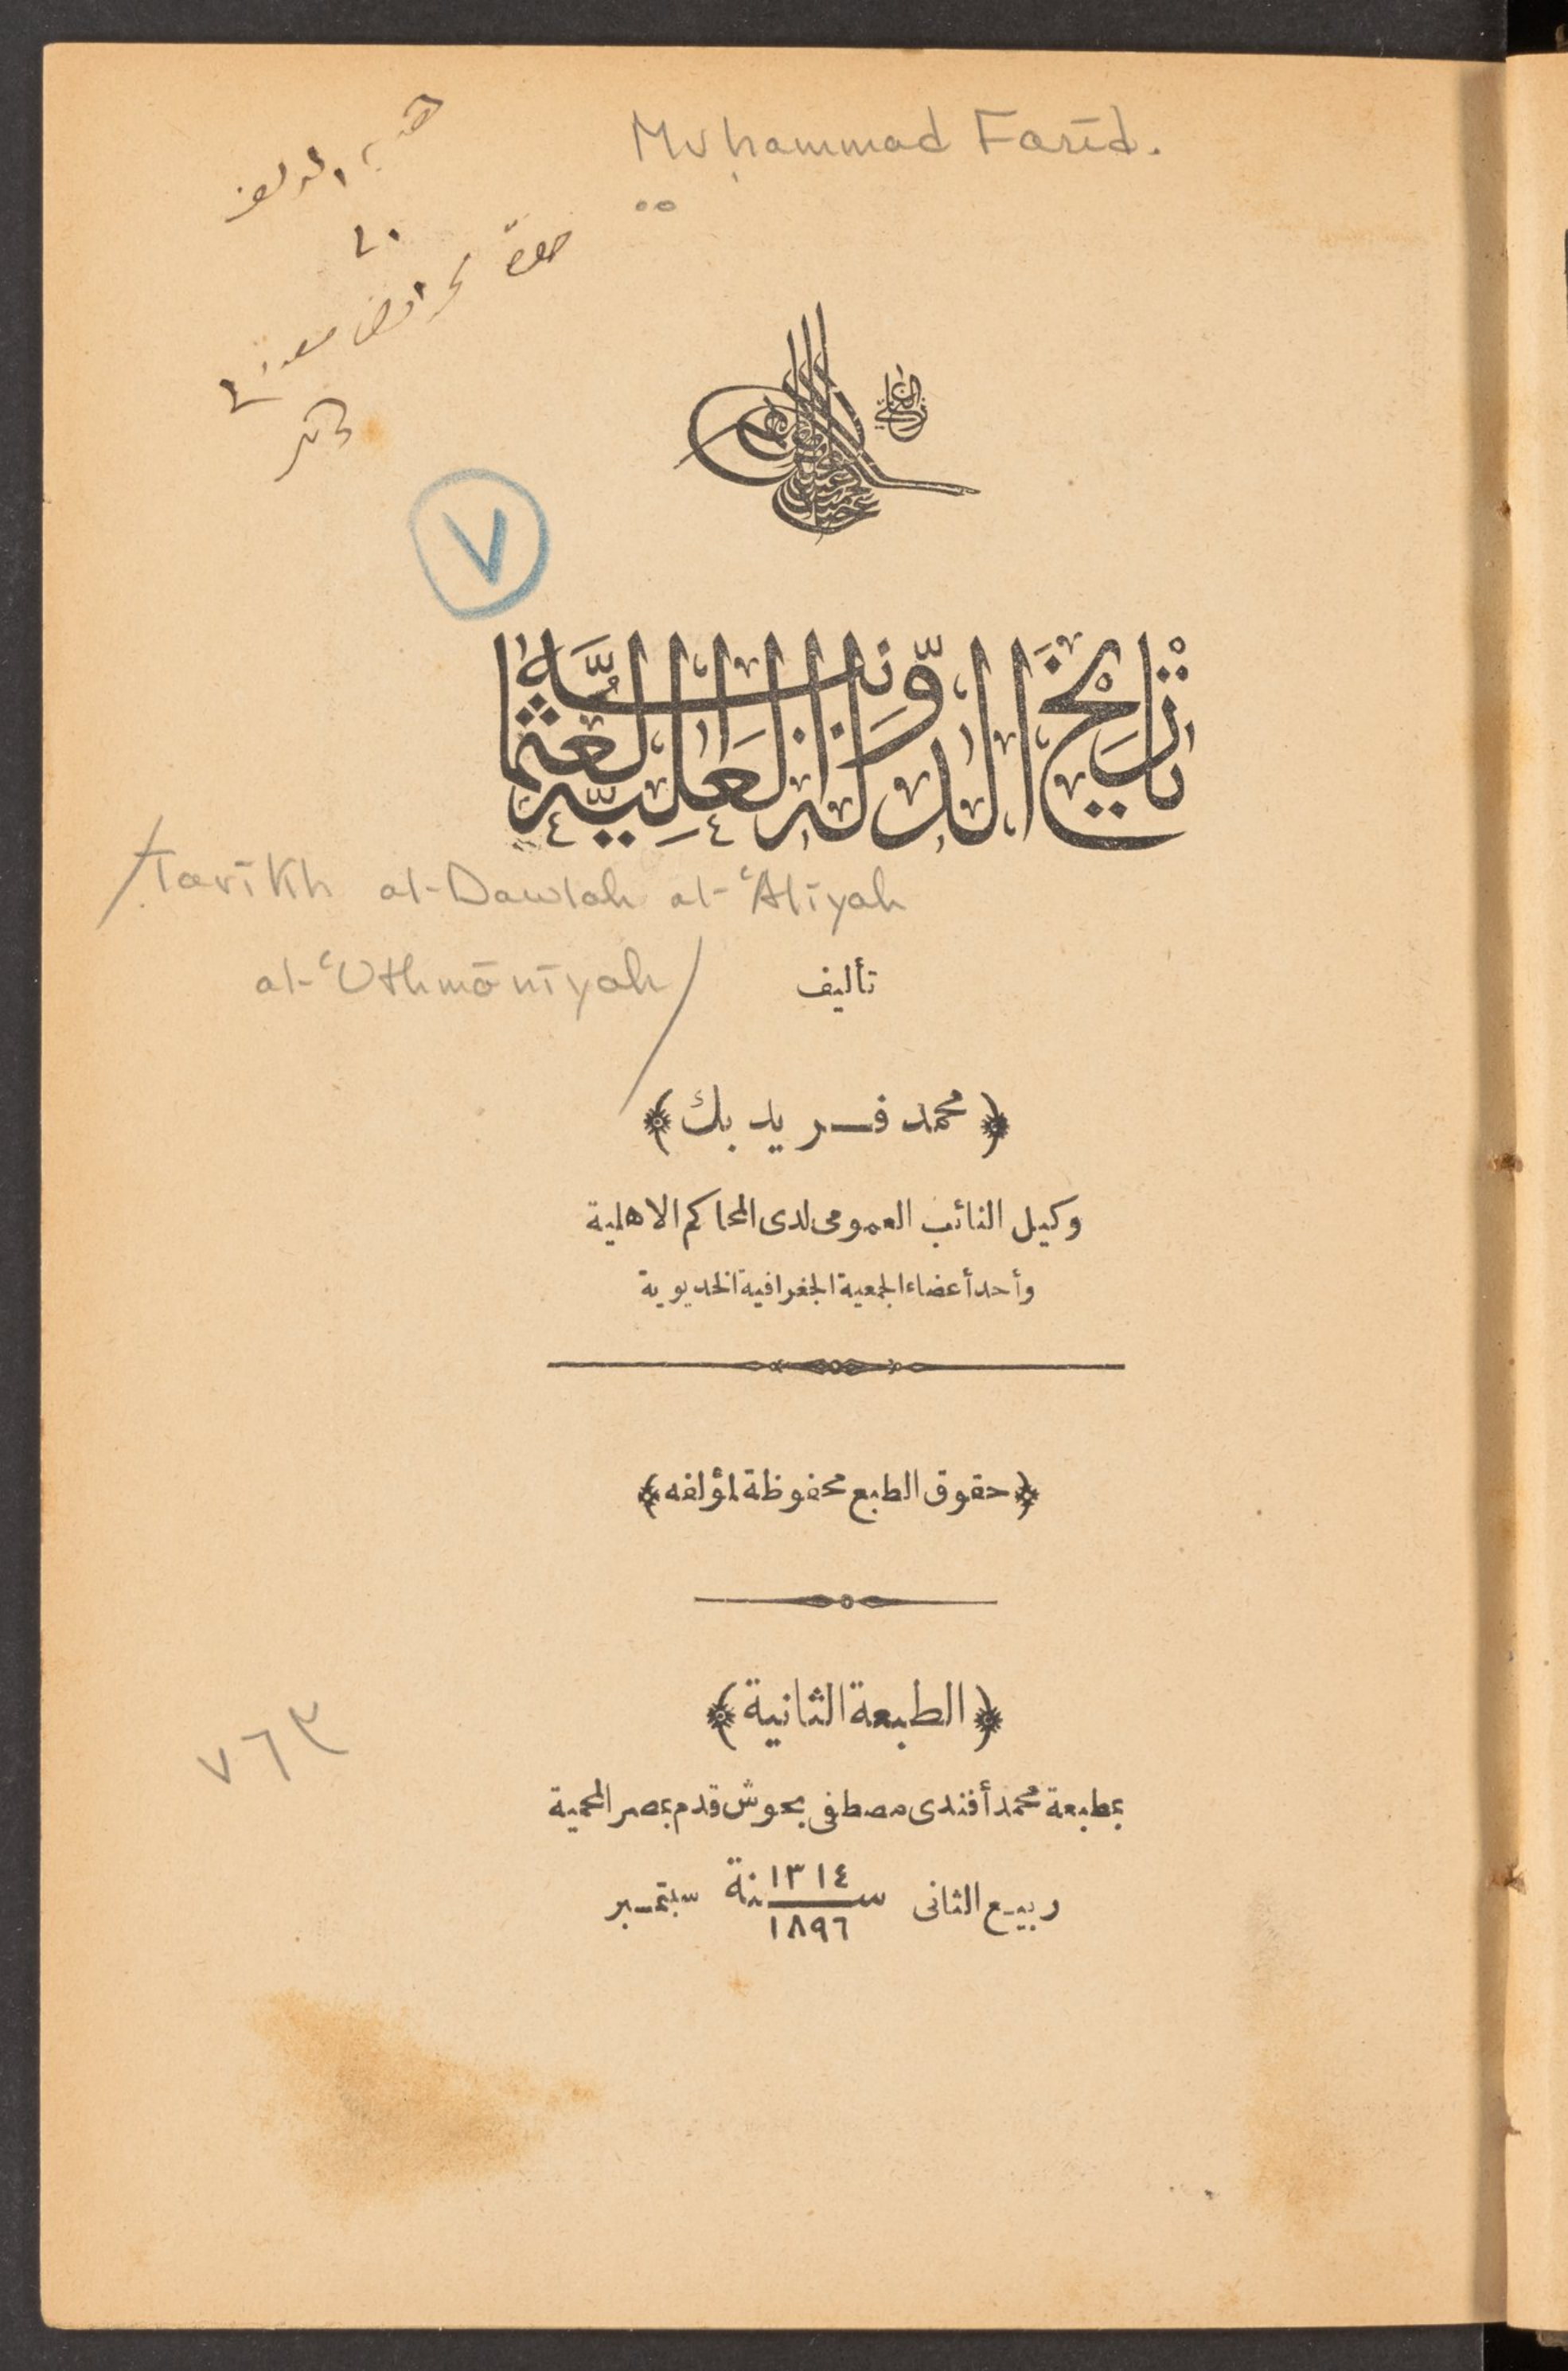 Muḥammad Farīd.
هدية المؤلف
الى
حضرة
٧
الغازى
تاريخ الدولة العلية العثمانية
Tarīkh al-Dawlah al-ʿAlīyah
al-ʿUthmānīyah
تأليف
﴿محمد فريد بك﴾
وكيل النائب العمومى لدى المحاكم الاهلية
وأحد أعضاء الجمعية الجغرافية الخديوية
﴿حقوق الطبع محفوظة لمؤلفه﴾
﴿الطبعة الثانية﴾
٧٦٣
بمطبعة محمد أفندى مصطفى بحوش قدم بمصر المحمية
ربيع الثانى سنة ١٣١٤ سبتمبر
١٨٩٦